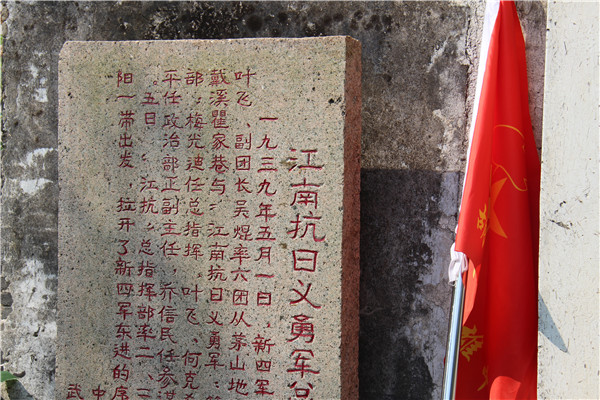 江南抗日义勇军总
一九三九年五月一日，新四军
叶飞、副团长吴焜率六团从茅山地
戴溪瞿家巷与“江南抗日义勇军”
部，梅光迪任总指挥，叶飞、何克希
平任政治部正副主任，乔信民任参谋
五日，“江抗”总指挥部率二、三
阳一带出发，拉开了新四军东进的序
中
武